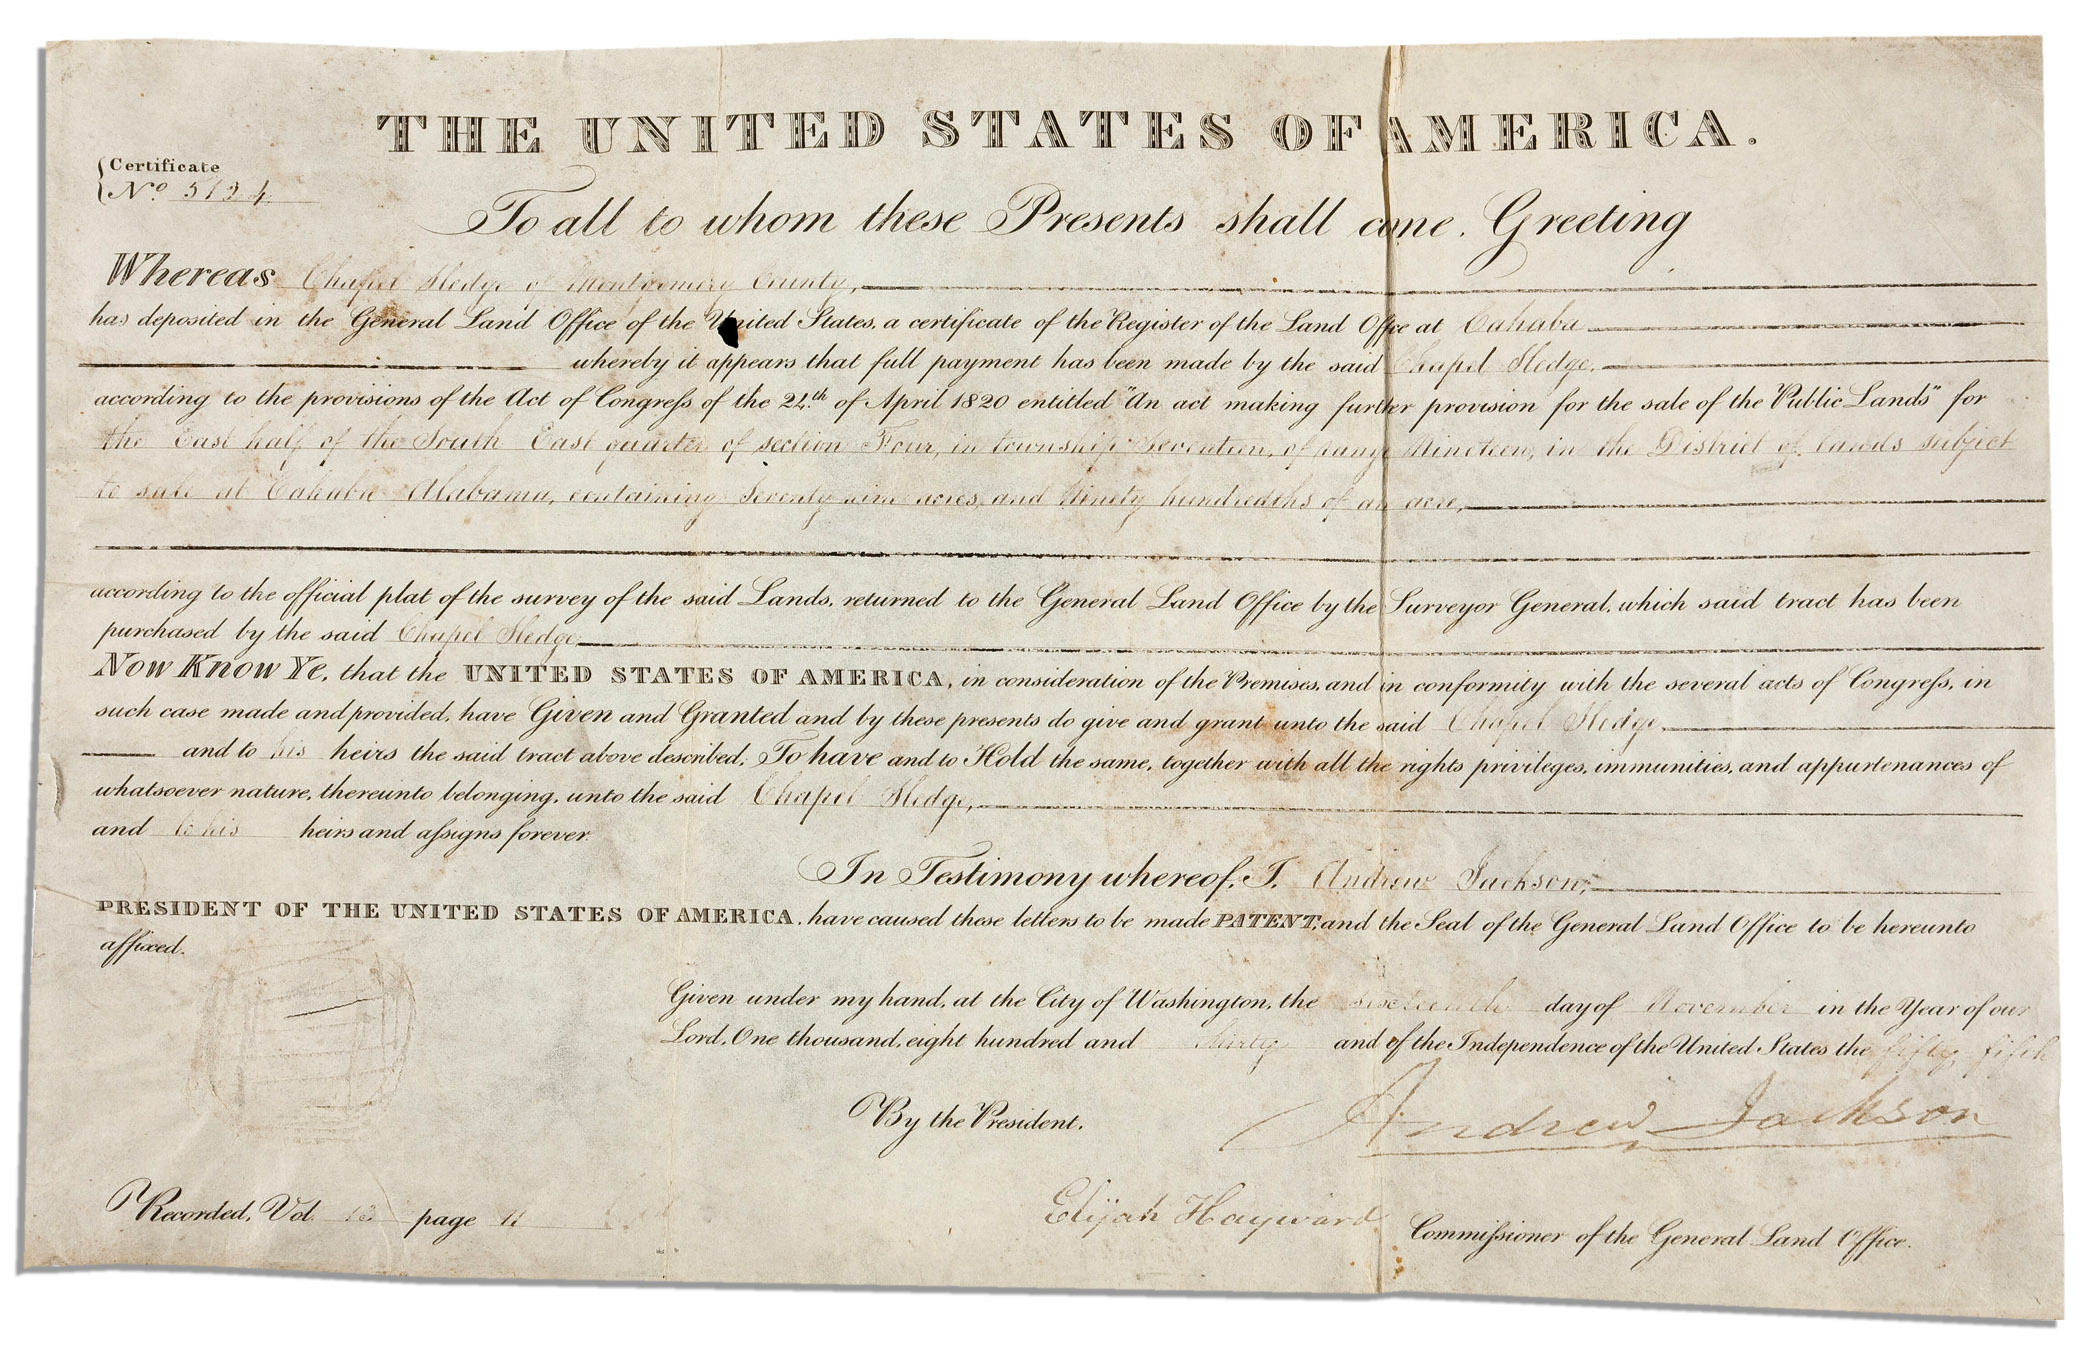 THE UNITED STATES OF AMERICA.
Certificate
No. 5124
To all to whom these Presents shall come, Greeting
Whereas Chapel Sledge of Montgomery County,
has deposited in the General Land Office of the United States, a certificate of the Register of the Land Office at Cahaba
whereby it appears that full payment has been made by the said Chapel Sledge,
according to the provisions of the Act of Congress of the 24th of April 1820 entitled "An act making further provision for the sale of the Public Lands" for
the East half of the South East quarter of section Four, in township Seventeen, of range Nineteen, in the District of lands subject
to sale at Cahaba Alabama, containing Seventy nine acres, and Ninety hundredths of an acre,
according to the official plat of the survey of the said Lands, returned to the General Land Office by the Surveyor General, which said tract has been
purchased by the said Chapel Sledge
Now Know Ye, that the UNITED STATES OF AMERICA, in consideration of the Premises, and in conformity with the several acts of Congress, in
such case made and provided, have Given and Granted and by these presents do give and grant unto the said Chapel Sledge,
and to his heirs the said tract above described; To have and to Hold the same, together with all the rights privileges, immunities, and appurtenances of
whatsoever nature, thereunto belonging, unto the said Chapel Sledge,
and to his heirs and assigns forever.
In Testimony whereof, I, Andrew Jackson,
PRESIDENT OF THE UNITED STATES OF AMERICA, have caused these letters to be made PATENT, and the Seal of the General Land Office to be hereunto
affixed.
Given under my hand, at the City of Washington, the sixteenth day of November in the Year of our
Lord, One thousand, eight hundred and thirty and of the Independence of the United States the fifty fifth
By the President.
Andrew Jackson
Recorded, Vol. 13 page 11
Elijah Hayward Commissioner of the General Land Office.